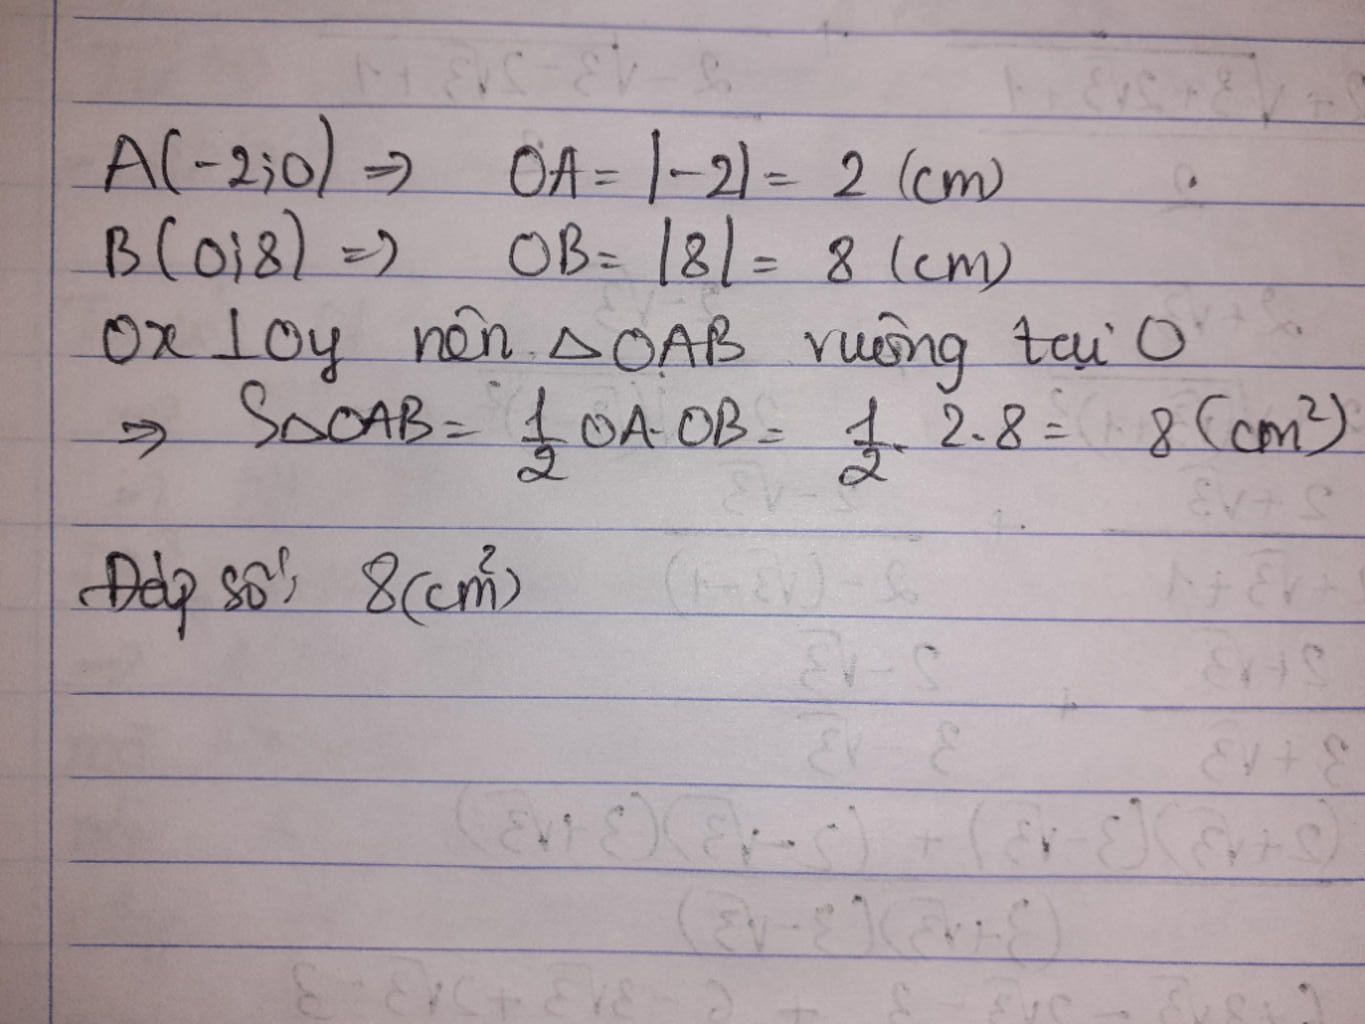 A(-2;0) => OA = |-2| = 2 (cm)
B(0;8) => OB = |8| = 8 (cm)
Ox ⊥ Oy nên △OAB vuông tại O
=> S△OAB = 1/2 OA·OB = 1/2 . 2.8 = 8 (cm²)
Đáp số: 8 (cm²)